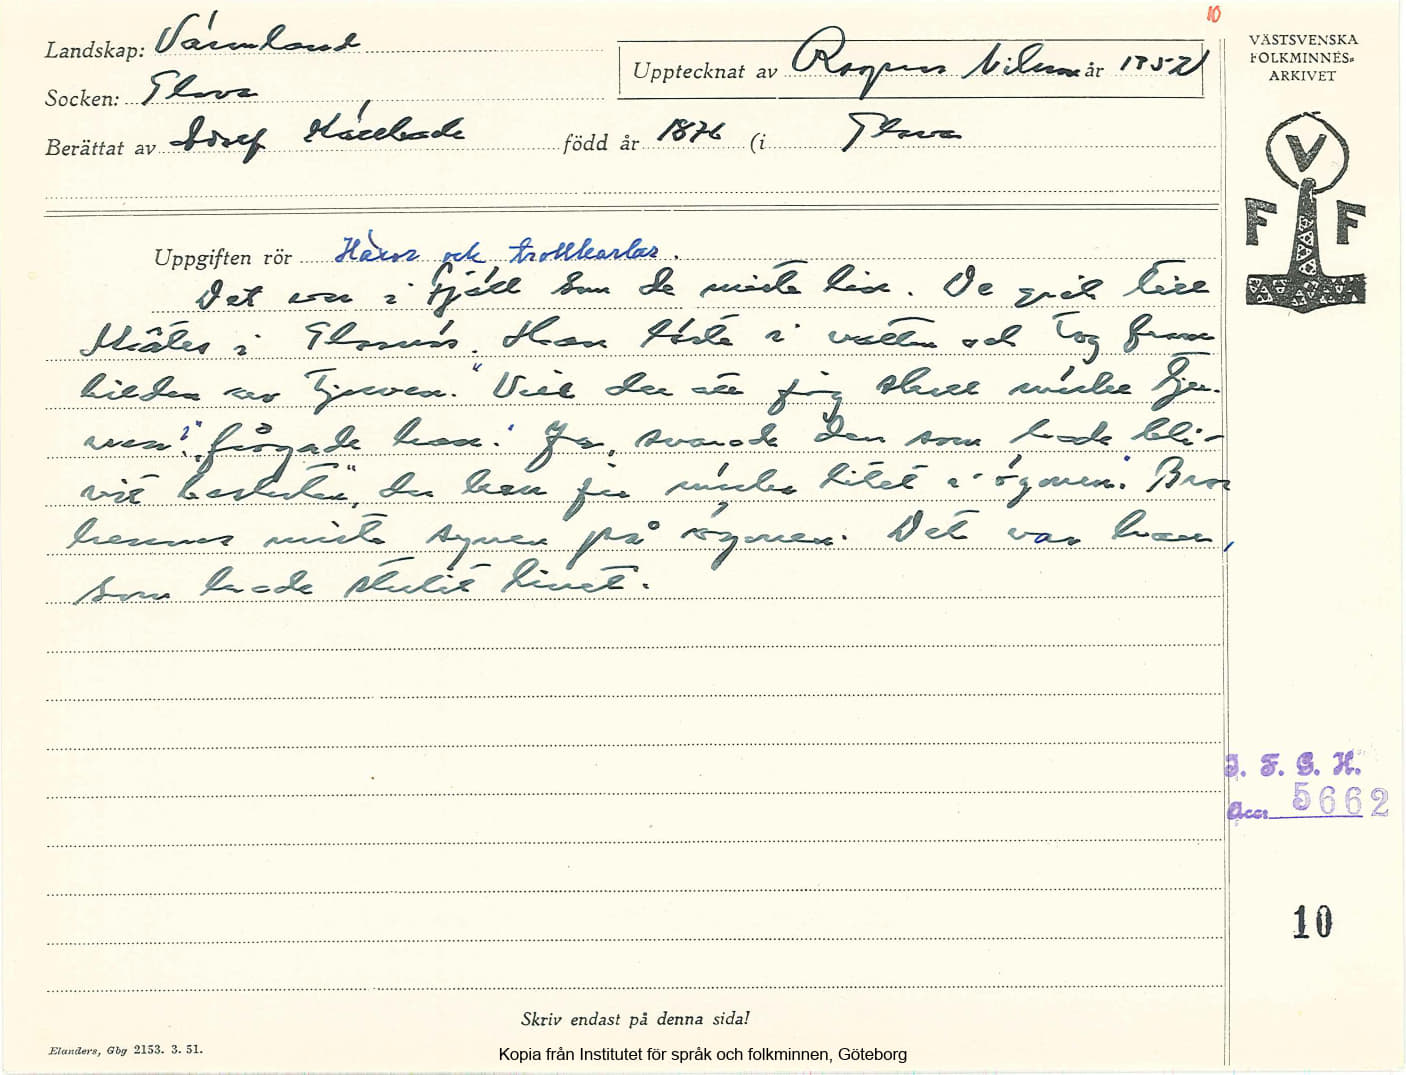 10
Landskap: Värmland
Upptecknat av Ragnar Nilsson år 1952
VÄSTSVENSKA
FOLKMINNES-
ARKIVET
Socken: Glava
Berättat av Josef född år 1876 (i Glava
V
F F
Uppgiften rör Häxor och trollkarlar.
Det var i Fjäll som de miste lin. De gick till
i Han läste i vatten och tog fram
bilden av tjuven. "Vill du att jag skall märka tju-
ven?" frågade han. "Ja, svarade den som hade bli-
vit bestulen", du kan ju märka litet i ögonen." Bror
hennes miste synen på ögonen. Det var han,
som hade stulit linet.
I. F. G. H.
Acc: 5662
10
Skriv endast på denna sida!
Elanders, Gbg 2153. 3. 51.
Kopia från Institutet för språk och folkminnen, Göteborg